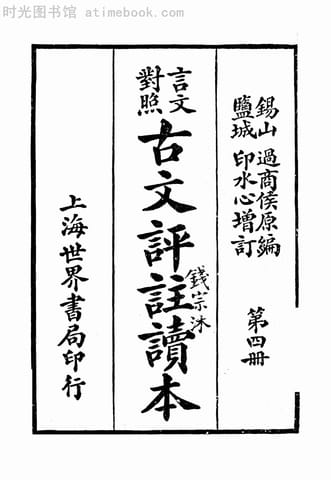 时光图书馆 - atimebook.com
錫山 過商侯原編
鹽城 印水心增訂
第四冊
言文對照
古文評註讀本
錢宗沐
上海世界書局印行